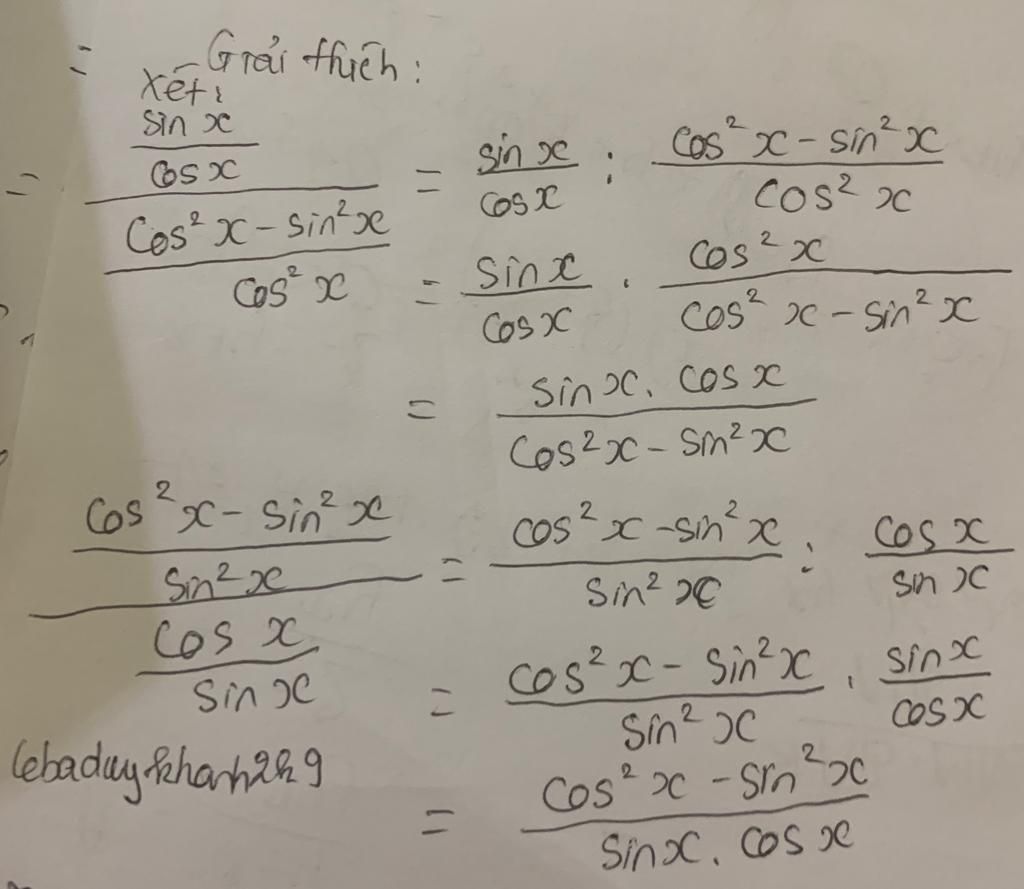 = Giải thích:
Xét:
= \frac{\frac{sin x}{cos x}}{\frac{cos² x - sin² x}{cos² x}} = \frac{sin x}{cos x} : \frac{cos² x - sin² x}{cos² x}
= \frac{sin x}{cos x} . \frac{cos² x}{cos² x - sin² x}
= \frac{sin x. cos x}{cos² x - sin² x}
\frac{\frac{cos² x - sin² x}{sin² x}}{\frac{cos x}{sin x}} = \frac{cos² x - sin² x}{sin² x} : \frac{cos x}{sin x}
= \frac{cos² x - sin² x}{sin² x} . \frac{sin x}{cos x}
= \frac{cos² x - sin² x}{sin x. cos x}